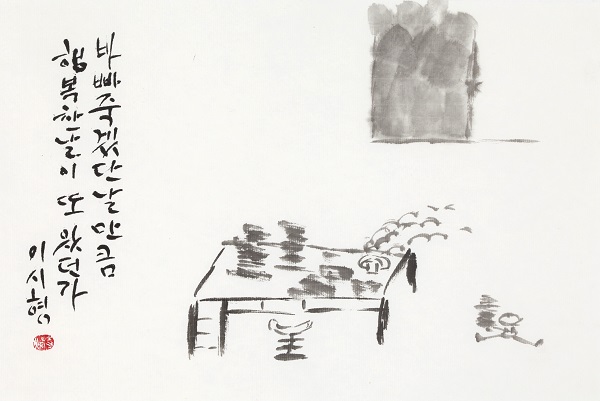 바빠 죽겠단 날만큼
행복한 날이 또 있던가
이시형